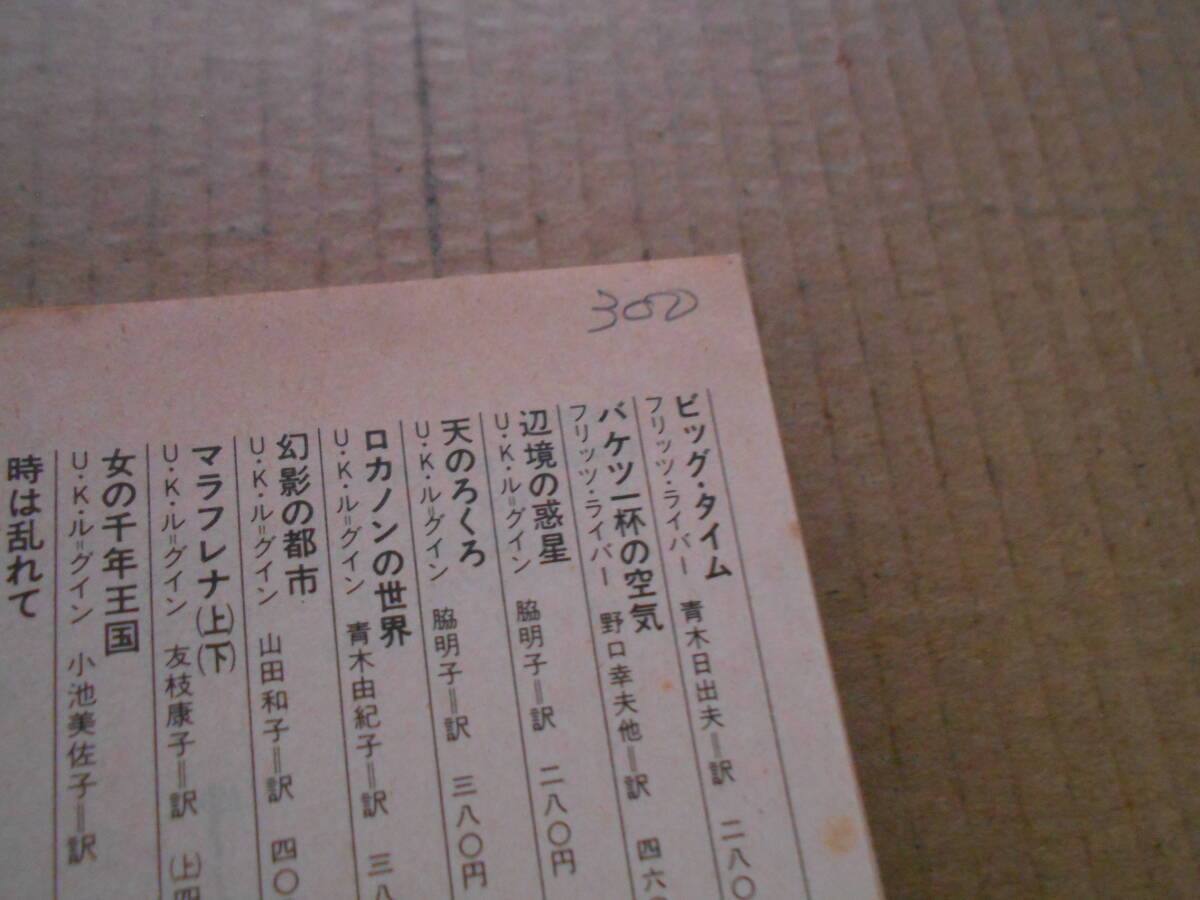 300
ビッグ・タイム
フリッツ・ライバー 青木日出夫=訳 二八〇
バケツ一杯の空気
フリッツ・ライバー 野口幸夫他=訳 四六
辺境の惑星
U・K・ル=グイン 脇明子=訳 二八〇円
天のろくろ
U・K・ル=グイン 脇明子=訳 三八〇円
ロカノンの世界
U・K・ル=グイン 青木由紀子=訳 三八
幻影の都市
U・K・ル=グイン 山田和子=訳 四〇
マラフレナ(上)(下)
U・K・ル=グイン 友枝康子=訳 (上)四
女の千年王国
U・K・ル=グイン 小池美佐子=訳
時は乱れて